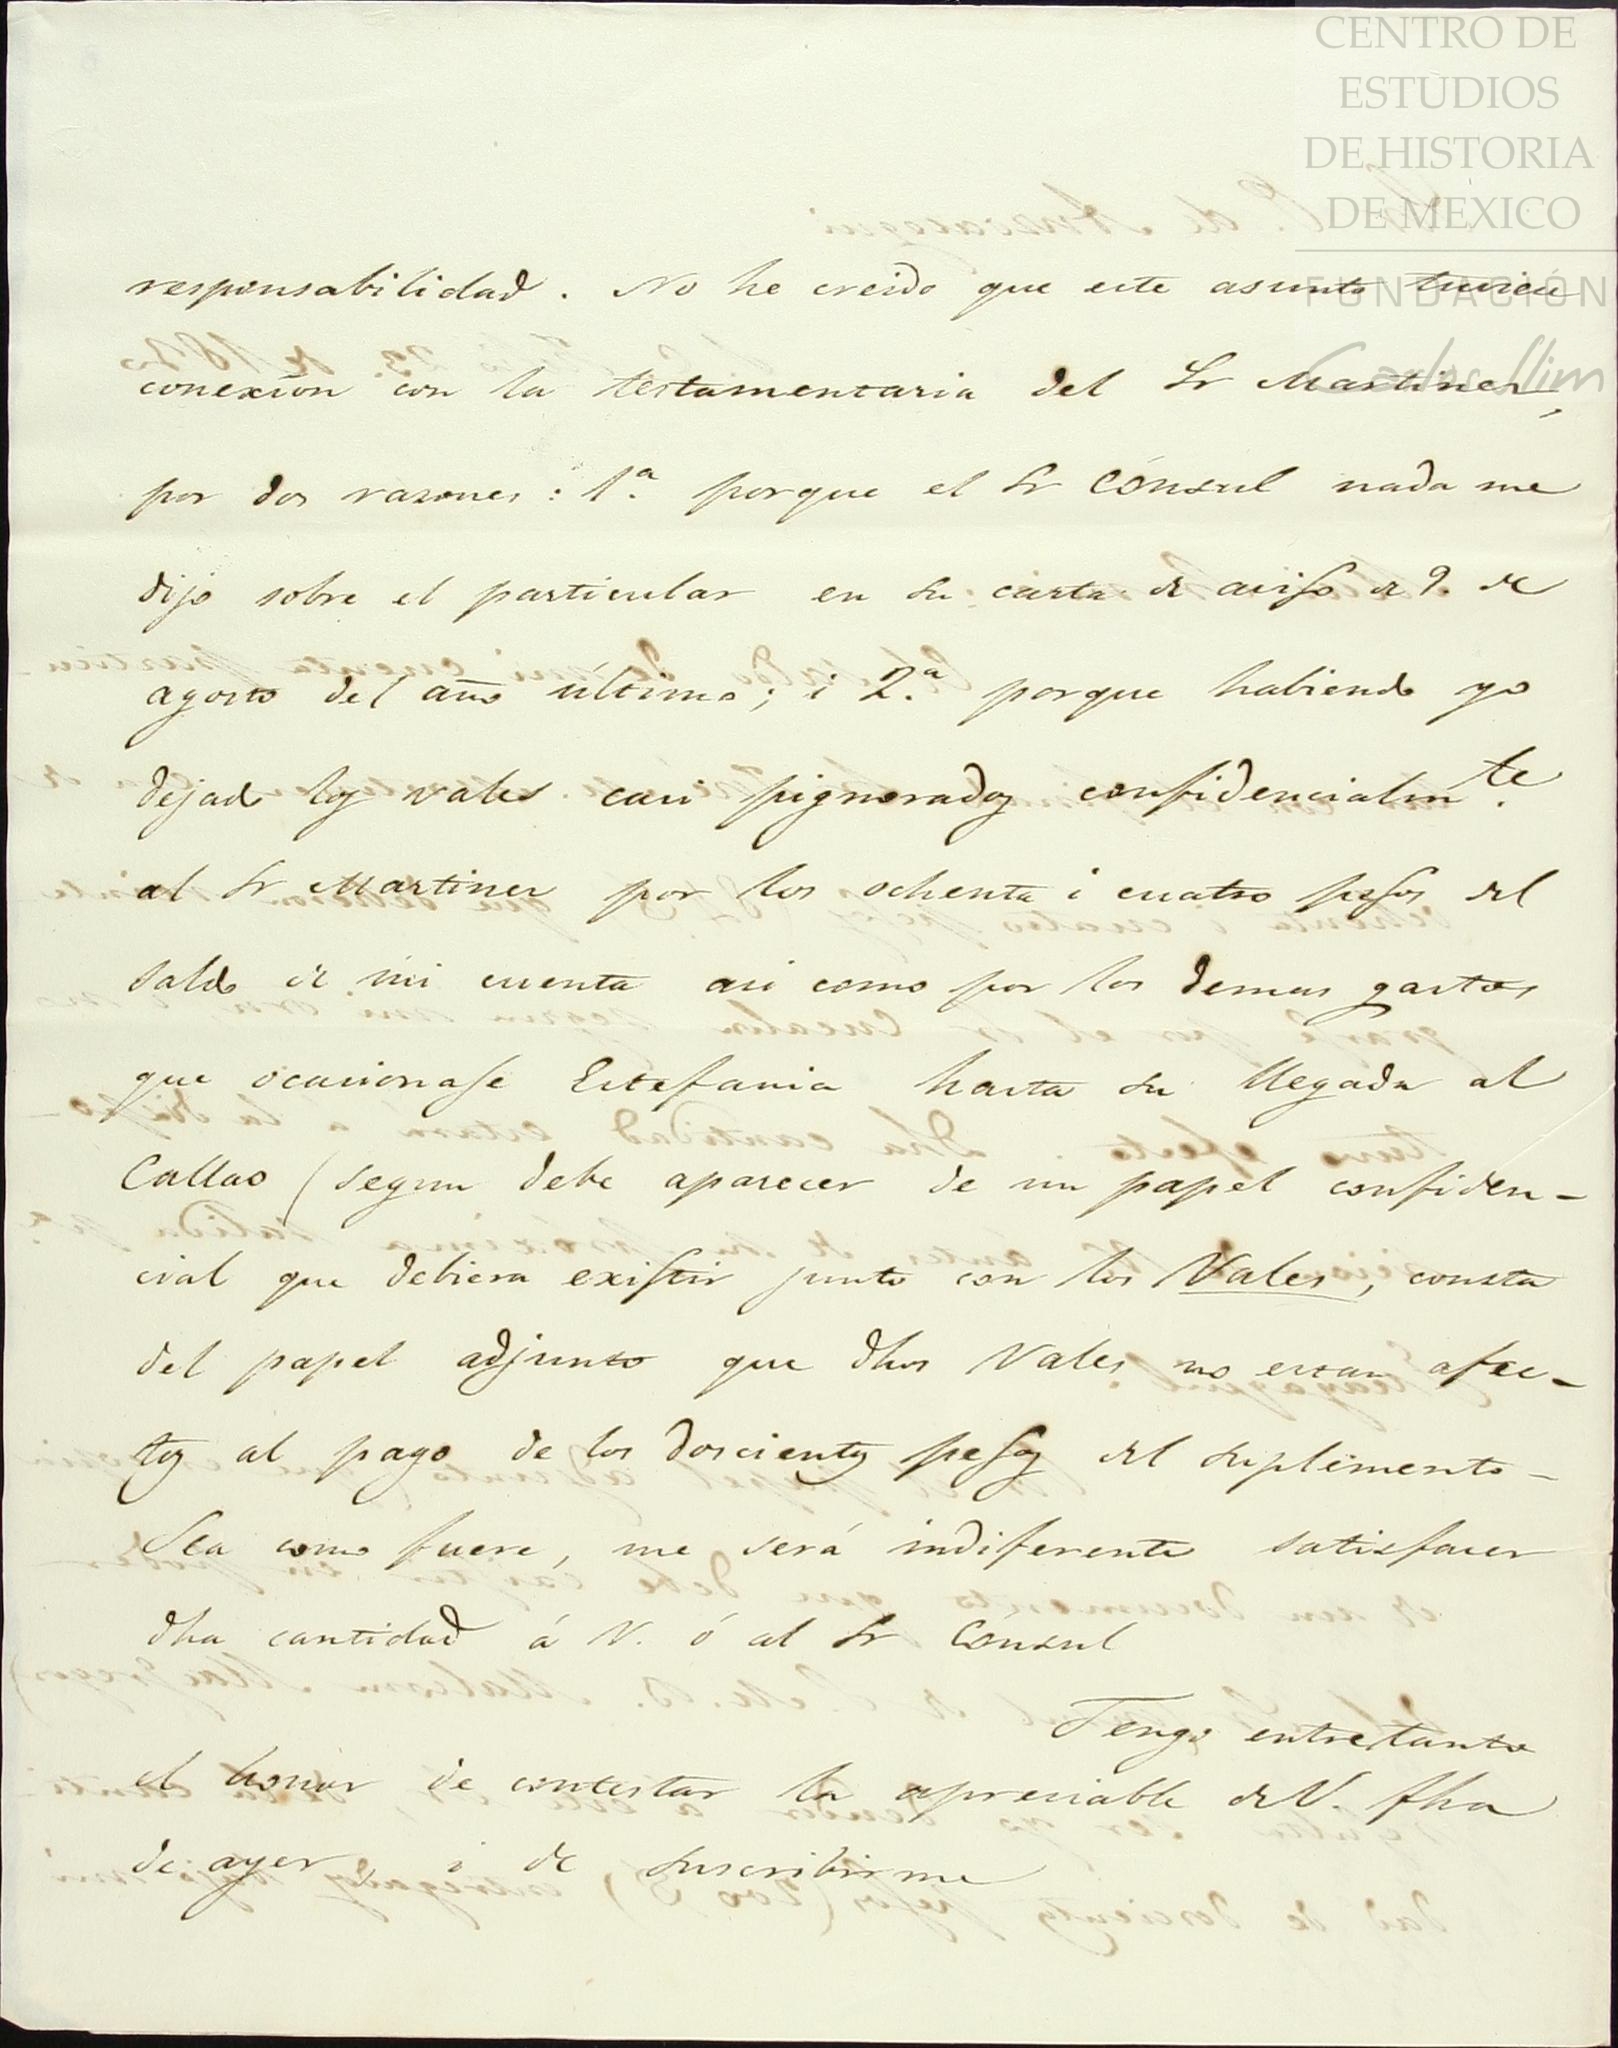 CENTRO DE
ESTUDIOS
DE HISTORIA
DE MEXICO
FUNDACIÓN
Carlos Slim
responsabilidad. No he creido que este asunto tuviese
conexion con la testamentaria del Sr Martinez,
por dos razones: 1.ª porque el Sr Cónsul nada me
dijo sobre el particular en su carta de aviso de 9. de
agosto del año último; i 2.ª porque habiendo yo
dejado los vales casi pignorados confidencialmte.
al Sr Martinez por los ochenta i cuatro pesos del
saldo de mi cuenta asi como por los demas gastos
que ocasionase Estefania hasta su llegada al
Callao (segun debe aparecer de un papel confiden-
cial que debiera existir junto con los Vales, consta
del papel adjunto que dhos Vales no estan afec-
tos al pago de los doscientos pesos del suplemento-
Sea como fuere, me será indiferente satisfacer
dha cantidad á V. ó al Sr Cónsul
Tengo entretanto
el honor de contestar la apreciable de V. fha
de ayer, i de suscribirme